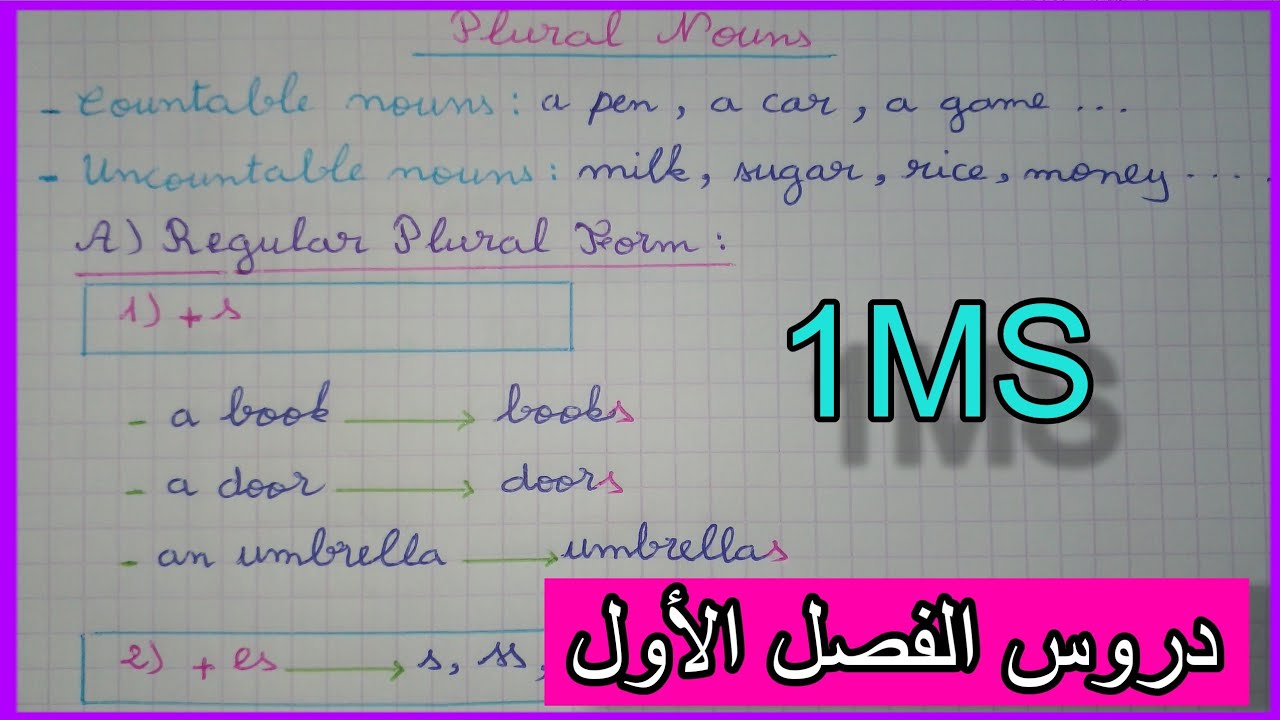 Plural Nouns
- Countable nouns : a pen, a car, a game ...
- Uncountable nouns : milk, sugar, rice, money ....
A) Regular Plural Form :
1) + s
1MS
- a book → books
- a door → doors
- an umbrella → umbrellas
2) + es → s, ss,
دروس الفصل الأول